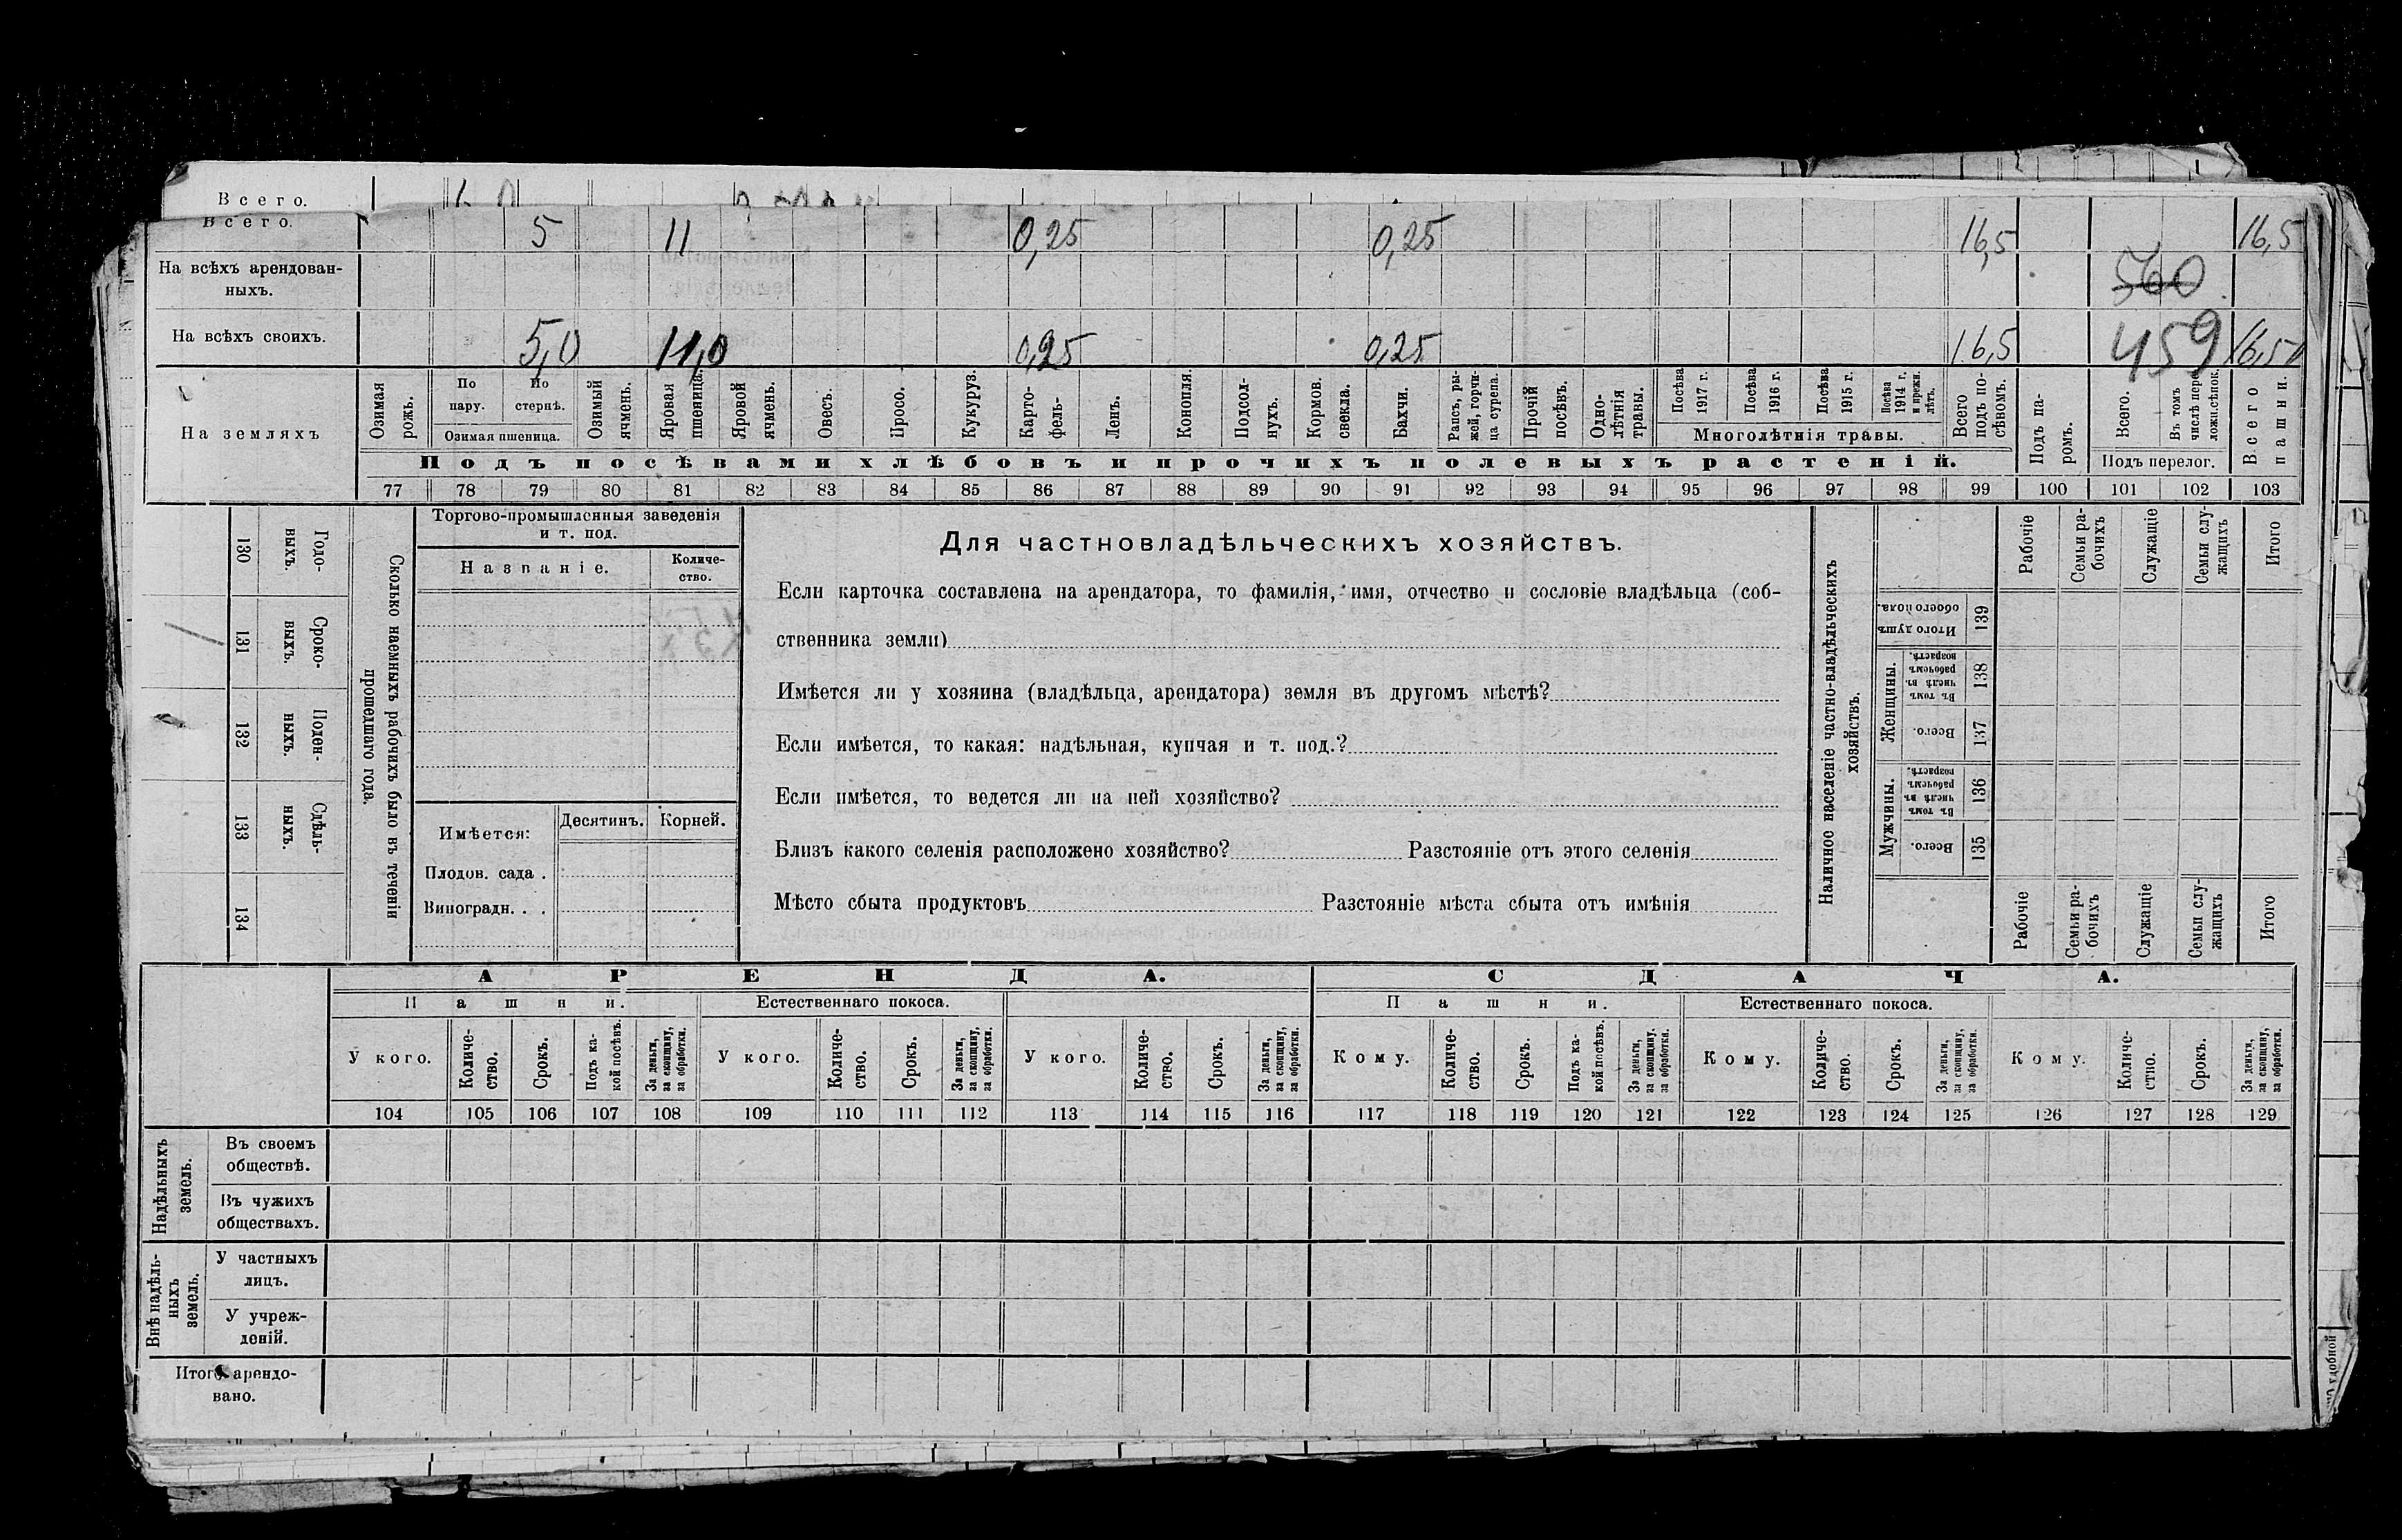 Всего.
Всего. 5 11 0,25 0,25 16,5 16,5
На всѣхъ арендован-
ныхъ. 560
На всѣхъ своихъ. 5,0 11,0 0,25 0,25 16,5 459 16,5
На земляхъ
Озимая рожь.
По пару.
По стернѣ.
Озимая пшеница.
Озимый ячмень.
Яровая пшеница.
Яровой ячмень.
Овесъ.
Просо.
Кукуруз.
Карто-
фель-
Ленъ.
Конопля.
Подсол-
нухъ.
Кормов.
свекла.
Бахчи.
Рапсъ, ры-
жей, горчи-
ца сурепа.
Прочій
посѣвъ.
Одно-
лѣтнія
травы.
Посѣва
1917 г.
Посѣва
1916 г.
Посѣва
1915 г.
Посѣва
1914 г.
и прежн.
лѣтъ.
Многолѣтнія травы.
Всего
подъ по-
сѣвомъ.
Подъ па-
ромъ.
Всего.
Въ томъ
числѣ пере-
ложн.сѣнок.
Подъ перелог.
Всего
пашни.
Подъ посѣвами хлѣбовъ и прочихъ полевыхъ растеній.
77 78 79 80 81 82 83 84 85 86 87 88 89 90 91 92 93 94 95 96 97 98 99 100 101 102 103
130 Годо-
выхъ.
131 Сроко-
выхъ.
132 Поден-
ныхъ.
133 Сдѣль-
ныхъ.
134
Сколько наемныхъ рабочихъ было въ теченіи
прошедшаго года.
Торгово-промышленныя заведенія
и т. под.
Названіе.
Количе-
ство.
Имѣется:
Десятинъ.
Корней.
Плодов. сада .
Виноградн. . .
Для частновладѣльческихъ хозяйствъ.
Если карточка составлена на арендатора, то фамилія, имя, отчество и сословіе владѣльца (соб-
ственника земли)
Имѣется ли у хозяина (владѣльца, арендатора) земля въ другомъ мѣстѣ?
Если имѣется, то какая: надѣльная, купчая и т. под.?
Если имѣется, то ведется ли на ней хозяйство?
Близъ какого селенія расположено хозяйство? Разстояніе отъ этого селенія
Мѣсто сбыта продуктовъ Разстояніе мѣста сбыта отъ имѣнія
Наличное населеніе частно-владѣльческихъ
хозяйствъ.
Рабочіе
Семьи ра-
бочихъ
Служащіе
Семьи слу-
жащихъ
Итого
Итого душъ
обоего пола.
139
Женщины.
Въ томъ
числѣ въ
рабочемъ
возрастѣ.
138
Всего.
137
Мужчины.
Въ томъ
числѣ въ
рабочемъ
возрастѣ.
136
Всего.
135
Рабочіе
Семьи ра-
бочихъ
Служащіе
Семьи слу-
жащихъ
Итого
АРЕНДА. СДАЧА.
Пашни. Естественнаго покоса. Пашни. Естественнаго покоса.
У кого.
Количе-
ство.
Срокъ.
Подъ ка-
кой посѣвъ.
За деньги,
за скопщину,
за обработки.
У кого.
Количе-
ство.
Срокъ.
За деньги,
за скопщину,
за обработки.
У кого.
Количе-
ство.
Срокъ.
За деньги,
за скопщину,
за обработки.
Кому.
Количе-
ство.
Срокъ.
Подъ ка-
кой посѣвъ.
За деньги,
за скопщину,
за обработки.
Кому.
Количе-
ство.
Срокъ.
За деньги,
за скопщину,
за обработки.
Кому.
Количе-
ство.
Срокъ.
За деньги,
за скопщину,
за обработки.
104 105 106 107 108 109 110 111 112 113 114 115 116 117 118 119 120 121 122 123 124 125 126 127 128 129
Надѣльныхъ
земель.
Въ своемъ
обществѣ.
Въ чужихъ
обществахъ.
Внѣ надѣль-
ныхъ
земель.
У частныхъ
лицъ.
У учреж-
деній.
Итого арендо-
вано.
удобной